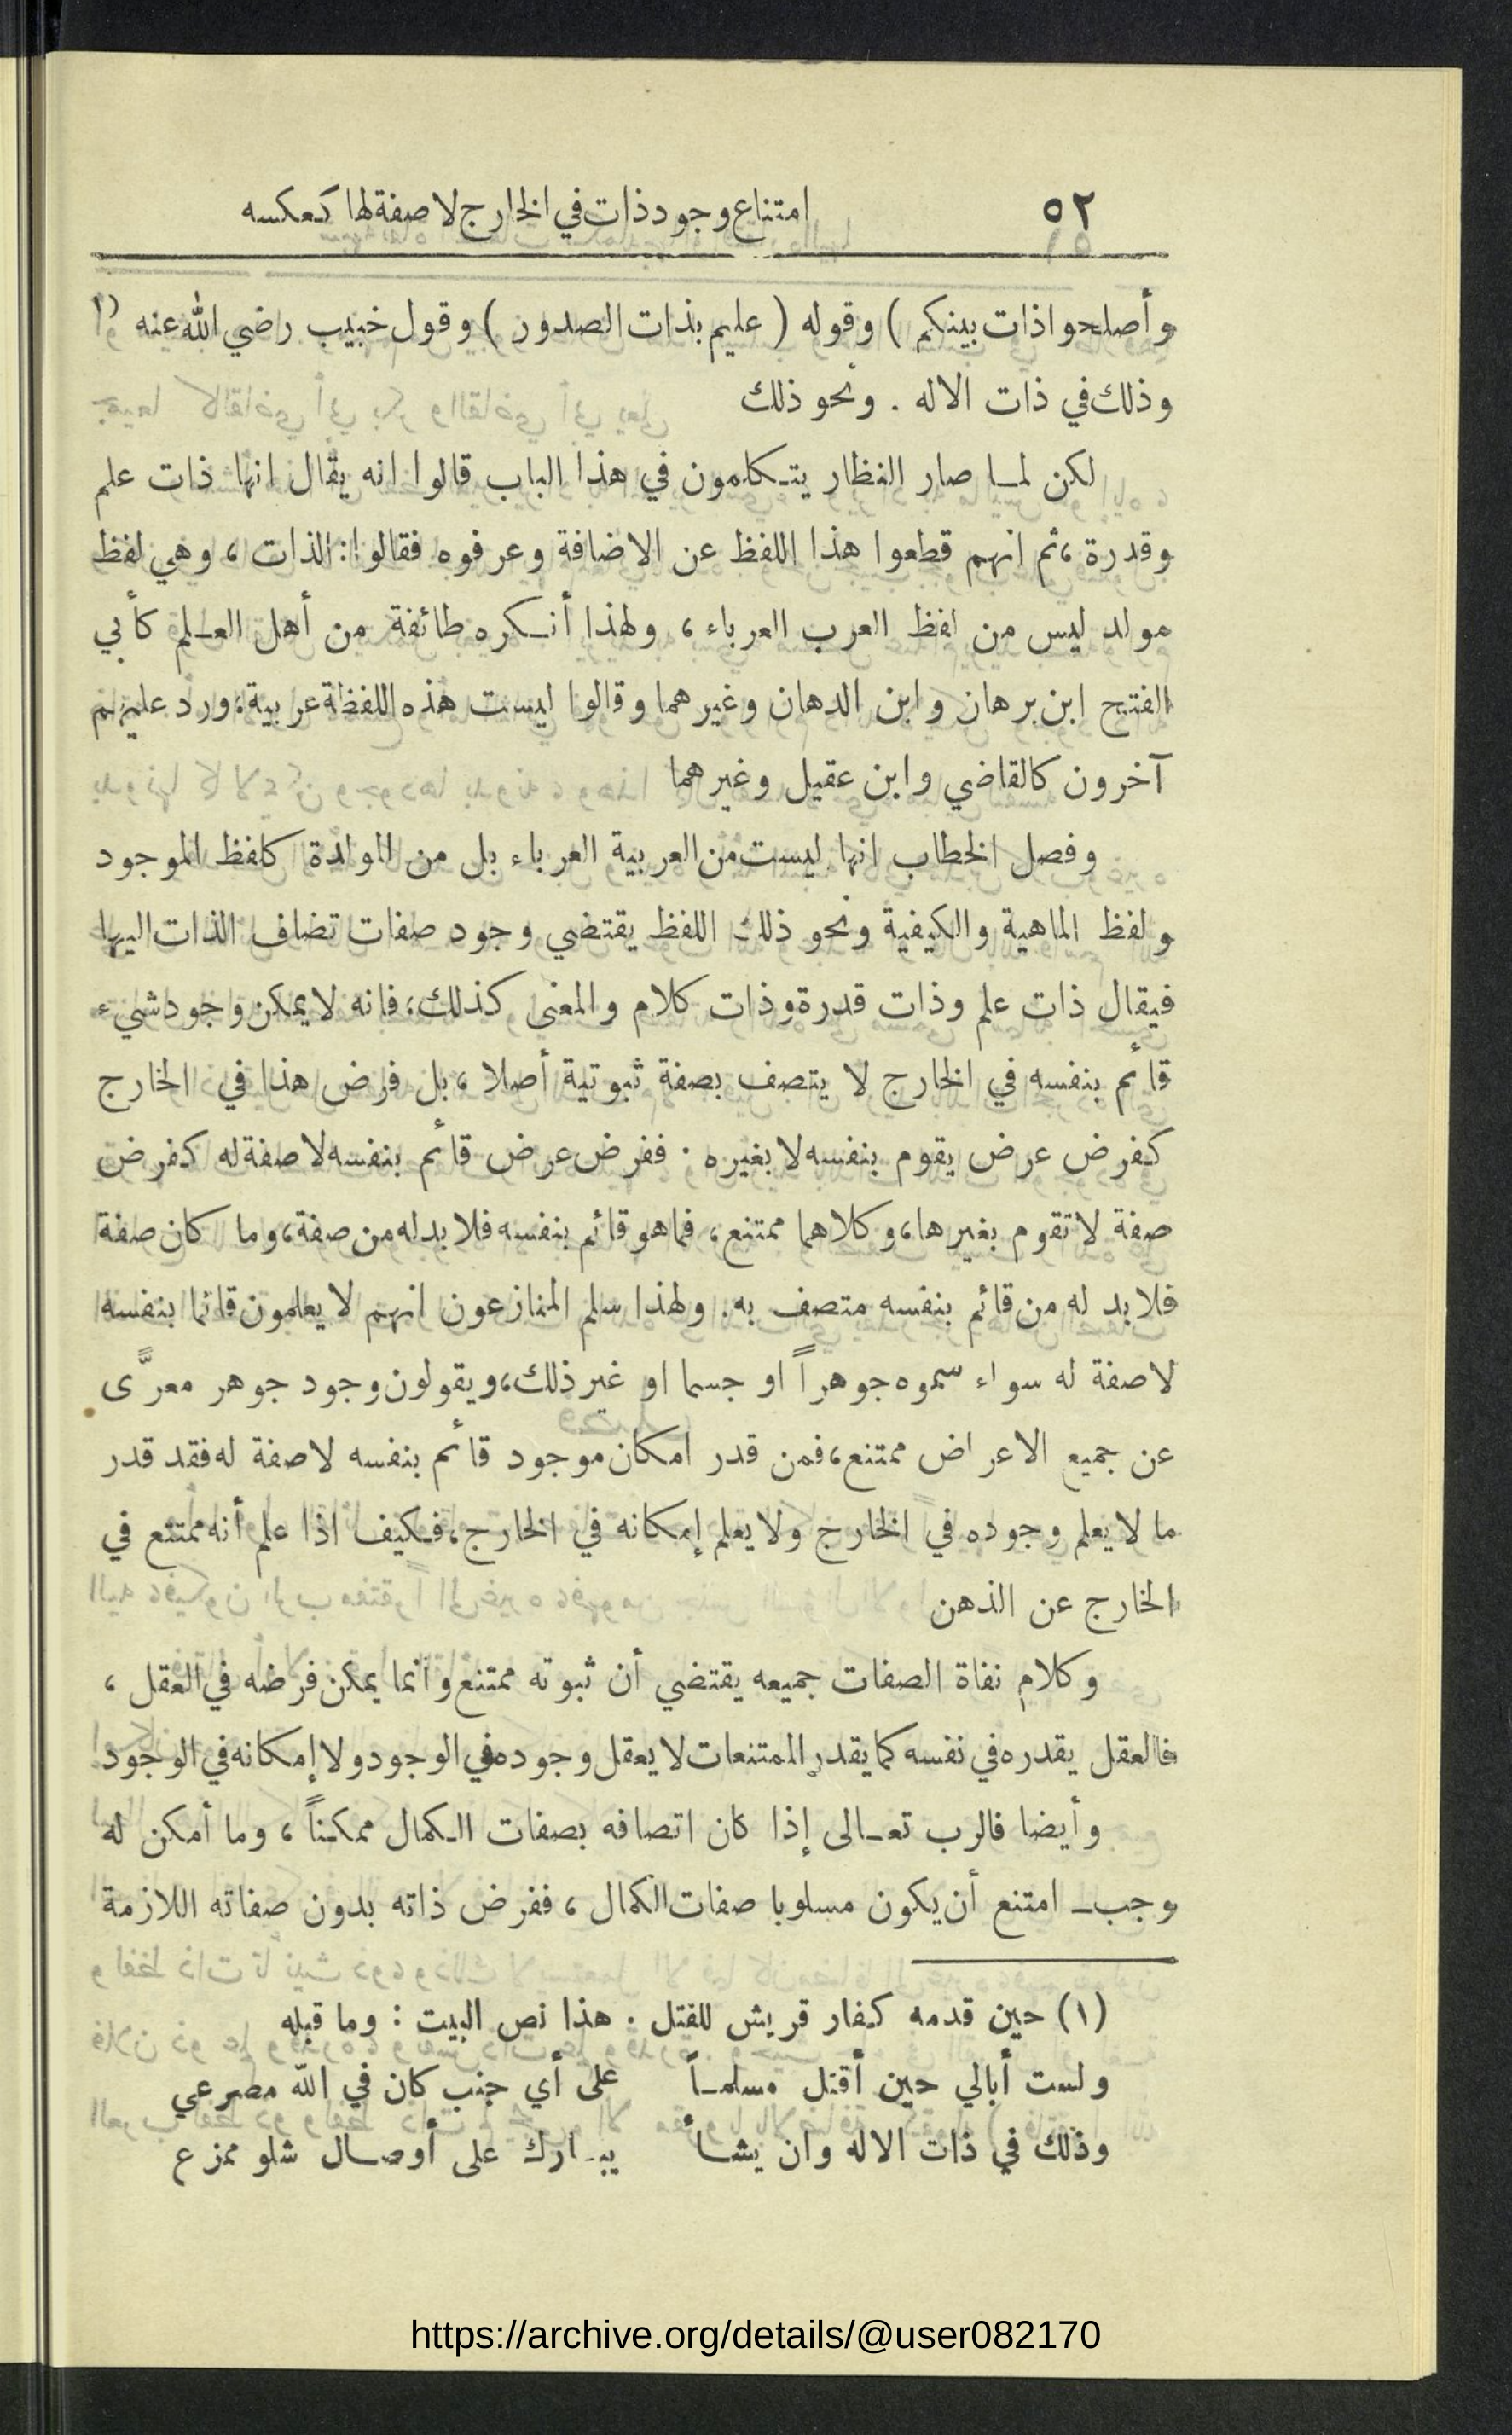 ٥٢ امتناع وجود ذات في الخارج لا صفة لها كعكسه
وأصلحوا ذات بينكم ) وقوله ( عليم بذات الصدور ) وقول خبيب رضي الله عنه (١
وذلك في ذات الاله . ونحو ذلك
لكن لما صار النظار يتكلمون في هذا الباب قالوا انه يقال انها ذات علم
وقدرة ، ثم انهم قطعوا هذا اللفظ عن الاضافة وعرفوه فقالوا : الذات ، وهي لفظ
مولد ليس من لفظ العرب العرباء ، ولهذا أنكره طائفة من أهل العلم كأبي
الفتح ابن برهان وابن الدهان وغيرهما وقالوا ليست هذه اللفظة عربية ، ورد عليهم
آخرون كالقاضي وابن عقيل وغيرهما
وفصل الخطاب انها ليست من العربية العرباء بل من المولدة كلفظ الموجود
ولفظ الماهية والكيفية ونحو ذلك اللفظ يقتضي وجود صفات تضاف الذات اليها
فيقال ذات علم وذات قدرة وذات كلام والمعنى كذلك ، فانه لا يمكن وجود شيء
قائم بنفسه في الخارج لا يتصف بصفة ثبوتية أصلا ، بل فرض هذا في الخارج
كفرض عرض يقوم بنفسه لا بغيره . ففرض عرض قائم بنفسه لا صفة له كفرض
صفة لا تقوم بغيرها ، وكلاهما ممتنع ، فما هو قائم بنفسه فلا بد له من صفة ، وما كان صفة
فلا بد له من قائم بنفسه متصف به . ولهذا سلم المنازعون انهم لا يعلمون قائما بنفسه
لا صفة له سواء سموه جوهراً او جسما او غير ذلك ، ويقولون وجود جوهر معرًّى
عن جميع الاعراض ممتنع ، فمن قدر امكان موجود قائم بنفسه لا صفة له فقد قدر
ما لا يعلم وجوده في الخارج ولا يعلم إمكانه في الخارج ، فكيف اذا علم أنه ممتنع في
الخارج عن الذهن
وكلام نفاة الصفات جميعه يقتضي أن ثبوته ممتنع وانما يمكن فرضه في العقل ،
فالعقل يقدره في نفسه كما يقدر الممتنعات لا يعقل وجوده في الوجود ولا إمكانه في الوجود
وأيضا فالرب تعالى إذا كان اتصافه بصفات الكمال ممكناً ، وما أمكن له
وجب ـ امتنع أن يكون مسلوبا صفات الكمال ، ففرض ذاته بدون صفاته اللازمة
(١) حين قدمه كفار قريش للقتل . هذا نص البيت : وما قبله
ولست أبالي حين أقتل مسلماً على أي جنب كان في الله مصرعي
وذلك في ذات الاله وان يشأ يبارك على أوصال شلو ممزع
https://archive.org/details/@user082170